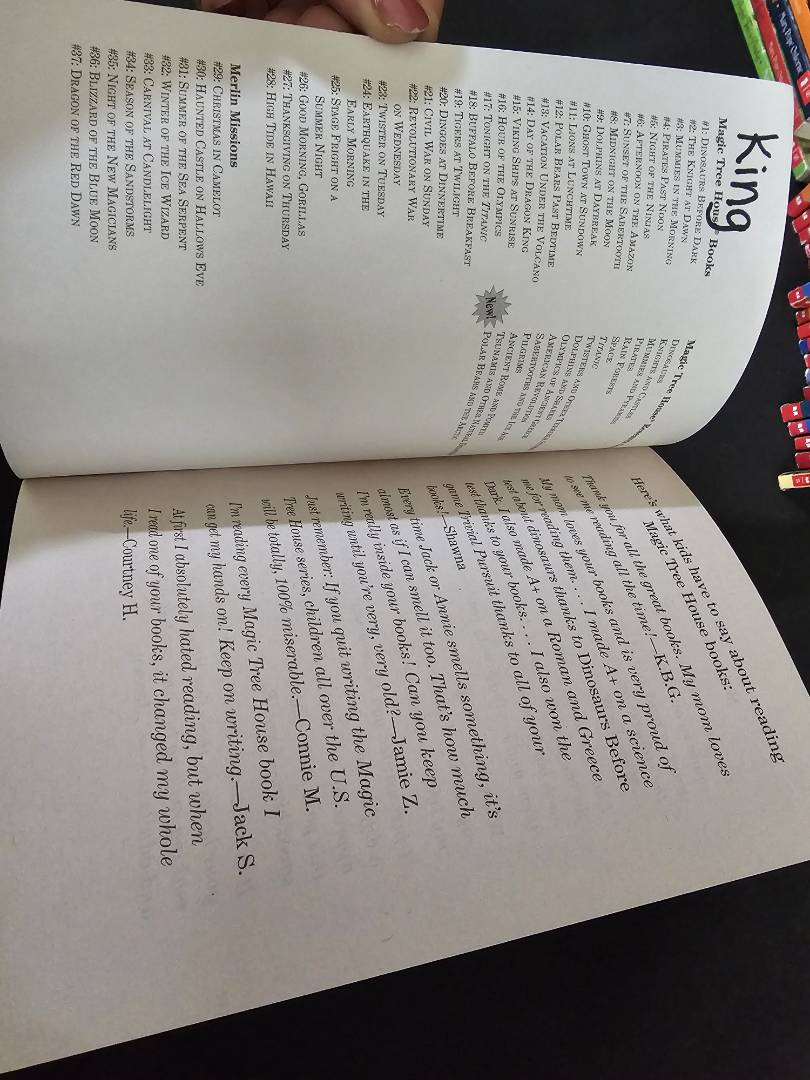 King
Magic Tree House Books
#1: Dinosaurs Before Dark
#2: The Knight at Dawn
#3: Mummies in the Morning
#4: Pirates Past Noon
#5: Night of the Ninjas
#6: Afternoon on the Amazon
#7: Sunset of the Sabertooth
#8: Midnight on the Moon
#9: Dolphins at Daybreak
#10: Ghost Town at Sundown
#11: Lions at Lunchtime
#12: Polar Bears Past Bedtime
#13: Vacation Under the Volcano
#14: Day of the Dragon King
#15: Viking Ships at Sunrise
#16: Hour of the Olympics
#17: Tonight on the Titanic
#18: Buffalo Before Breakfast
#19: Tigers at Twilight
#20: Dingoes at Dinnertime
#21: Civil War on Sunday
#22: Revolutionary War
on Wednesday
#23: Twister on Tuesday
#24: Earthquake in the
Early Morning
#25: Stage Fright on a
Summer Night
#26: Good Morning, Gorillas
#27: Thanksgiving on Thursday
#28: High Tide in Hawaii
Merlin Missions
#29: Christmas in Camelot
#30: Haunted Castle on Hallows Eve
#31: Summer of the Sea Serpent
#32: Winter of the Ice Wizard
#33: Carnival at Candlelight
#34: Season of the Sandstorms
#35: Night of the New Magicians
#36: Blizzard of the Blue Moon
#37: Dragon of the Red Dawn
Magic Tree House
Dinosaurs
Knights and Castles
Mummies and Pyramids
Pirates
Rain Forests
Space
Titanic
Twisters and Other
Dolphins and Sharks
Olympics of Ancient Greece
American Revolution
Sabertooths and the Ice Age
Pilgrims
Ancient Rome and Pompeii
Tsunamis and Other
New!
Polar Bears and the Arctic
Here's what kids have to say about reading
Magic Tree House books:
Thank you for all the great books. My mom loves
to see me reading all the time!—K.B.G.
My mom loves your books and is very proud of
me for reading them. . . . I made A+ on a science
test about dinosaurs thanks to Dinosaurs Before
Dark. I also made A+ on a Roman and Greece
test thanks to your books. . . . I also won the
game Trivial Pursuit thanks to all of your
books!—Shawna
Every time Jack or Annie smells something, it's
almost as if I can smell it too. That's how much
I'm really inside your books! Can you keep
writing until you're very, very old?—Jamie Z.
Just remember: If you quit writing the Magic
Tree House series, children all over the U.S.
will be totally, 100% miserable.—Connie M.
I'm reading every Magic Tree House book I
can get my hands on! Keep on writing.—Jack S.
At first I absolutely hated reading, but when
I read one of your books, it changed my whole
life.—Courtney H.